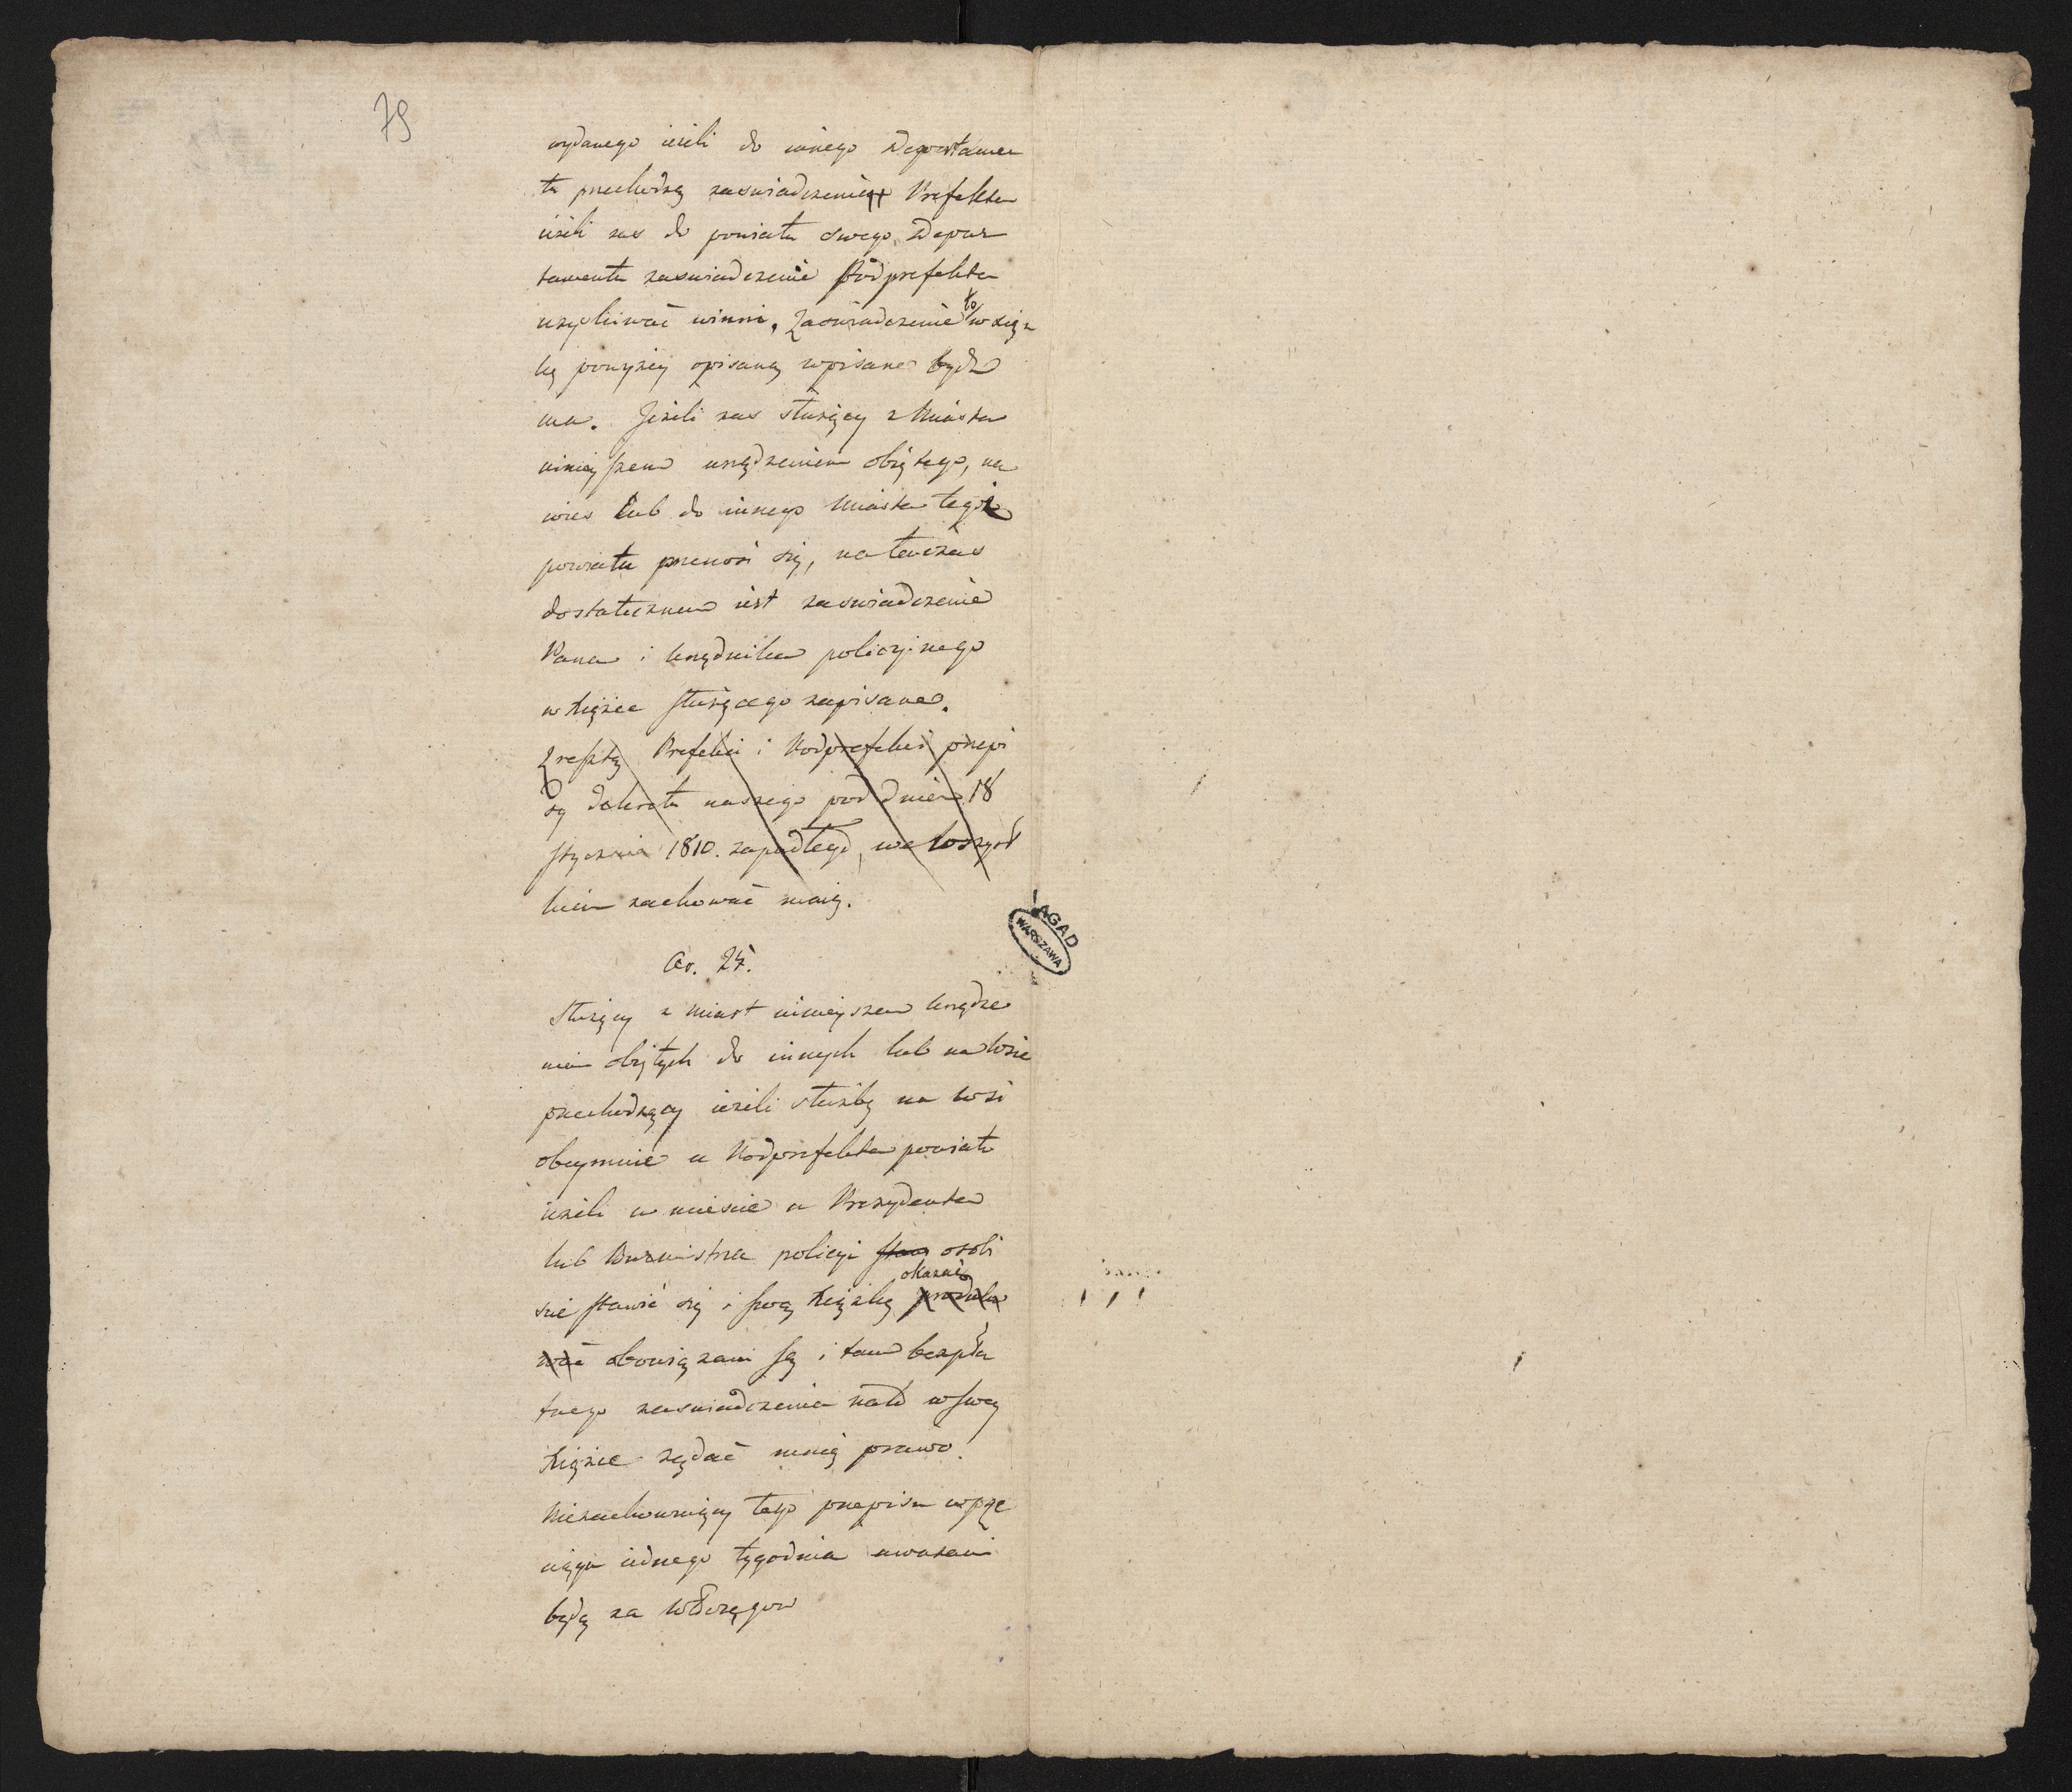 79
wydanego ieżeli do innego Departamen
tu przechodzą zaswiadczenie Prefekta
ieżeli zas do powiatu swego Depar
tamentu zaswiadczenie Podprefekta
uzyskiwać winni. Zaswiadczenie to w xiąż
kę powyżey opisaną wpisane bydź
ma. Jeżeli zas służący z Miasta
ninieyszem urządzeniem obiętego, na
wies lub do innego Miasta tegoż
powiatu przenosi się, na tenczas
dostatecznem iest zaswiadczenie
Pana i Urzędnika policyinego
w xiążce służącego zapisane.
Zresztą Prefekci i Podprefekci przepi
sy dekretu naszego pod dniem 18
Stycznia 1810. zapadłego, we wszyst
kiem zachować maią.
Ar. 24.
Służący z miast ninieyszem Urządze
niem obiętych do innych lub na Wsie
przechodzący ieżeli służbę na wsi
obeymuie u Podprefekta powiatu
ieżeli w miescie u Prezydenta
lub Burmistrza policyi staw osobi
okazać
scie stawić się i swą xiążkę produko
wać obowiązani są i tam bezpła
tnego zaswiadczenia na to w swey
xiążce żądać maią prawo.
Niezachowuiący tego przepisu w prze
ciągu iednego tygodnia uważani
będą za włóczęgow
AGAD
WARSZAWA